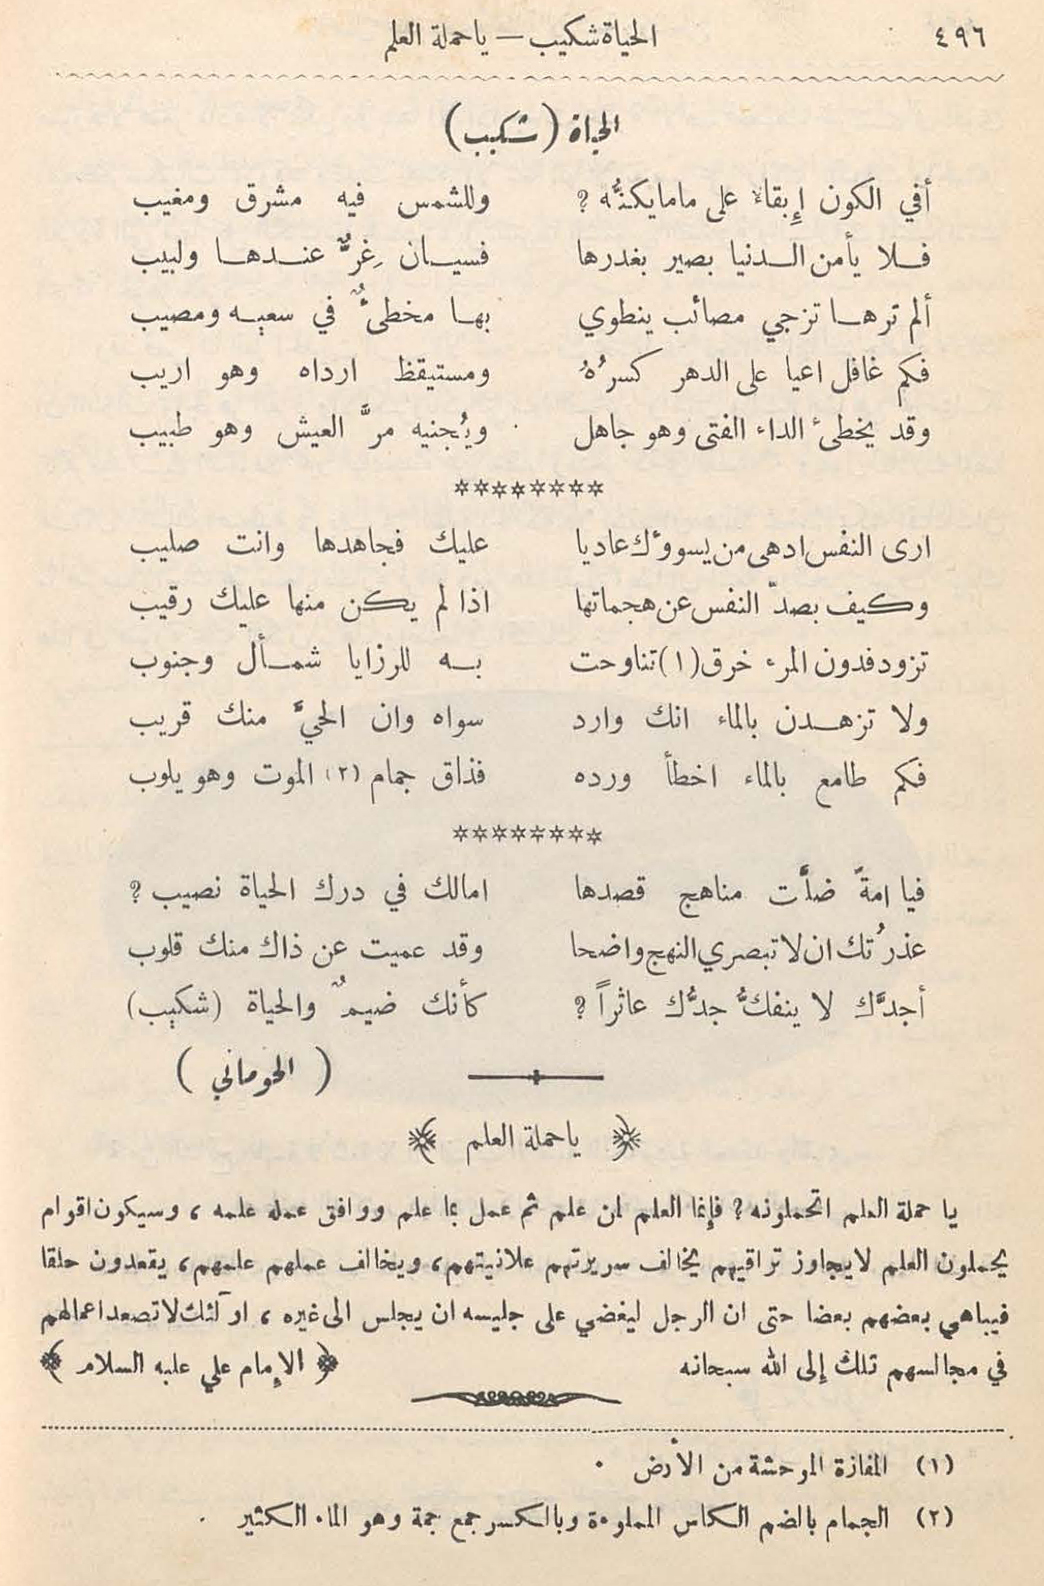 ٤٩٦ الحياة شكيب — يا حملة العلم
الحياة (شكيب)
أفي الكون إِبقاء على مامايكنُّه ؟ وللشمس فيه مشرق ومغيب
فلا يأمن الدنيا بصير بغدرها فسيان غِرٌّ عندها ولبيب
ألم ترها تزجي مصائب ينطوي بها مخطئٌ في سعيه ومصيب
فكم غافل اعيا على الدهر كسرُهُ ومستيقظ ارداه وهو اريب
وقد يخطئ الداء الفتى وهو جاهل ويُجنيه مرَّ العيش وهو طبيب
********
ارى النفس ادهى من يسووٴك عاديا عليك فجاهدها وانت صليب
وكيف بصدّ النفس عن هجماتها اذا لم يكن منها عليك رقيب
تزود فدون المرء خرق (١) تناوحت به للرزايا شمأل وجنوب
ولا تزهدن بالماء انك وارد سواه وان الحيَّ منك قريب
فكم طامع بالماء اخطأ ورده فذاق جمام (٢) الموت وهو يلوب
********
فيا امةً ضلَّت مناهج قصدها امالك في درك الحياة نصيب ؟
عذرُتك ان لا تبصري النهج واضحا وقد عميت عن ذاك منك قلوب
أجدَّك لا ينفكُّ جدُّك عاثراً ؟ كأنك ضيمٌ والحياة (شكيب)
( الحوماني )
يا حملة العلم
يا حملة العلم اتحملونه ؟ فإنما العلم لمن علم ثم عمل بما علم ووافق عمله علمه ، وسيكون اقوام
يحملون العلم لا يجاوز تراقيهم يخالف سريرتهم علانيتهم ، ويخالف عملهم علمهم ، يقعدون حلقا
فيباهي بعضهم بعضا حتى ان الرجل ليغضي على جليسه ان يجلس الى غيره ، اولٓئك لا تصعد اعمالهم
في مجالسهم تلك إلى الله سبحانه ﴿ الإمام علي عليه السلام ﴾
(١) المفازة الموحشة من الأرض .
(٢) الجمام بالضم الكاس المملوءة وبالكسر جمع جمة وهو الماء الكثير .